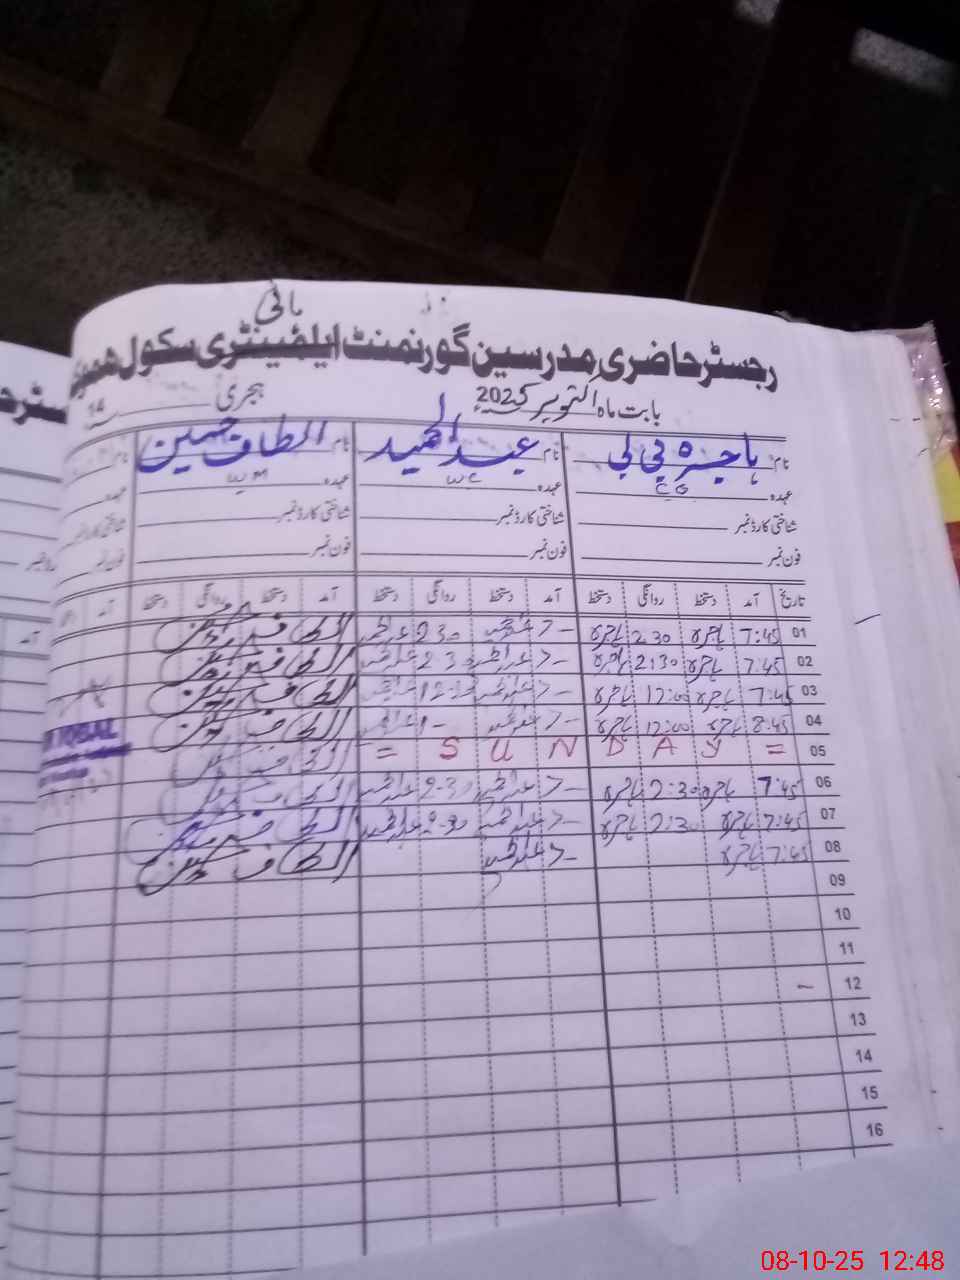 ہائی
رجسٹر حاضری مدرسین گورنمنٹ ایلیمینٹری سکول
بابت ماہ اکتوبر 2025 ہجری 14
نام ہاجرہ بی بی نام عبدالحمید نام الطاف حسین نام
عہدہ C G عہدہ W C عہدہ W M عہدہ
شناختی کارڈ نمبر شناختی کارڈ نمبر شناختی کارڈ نمبر شناختی کارڈ
فون نمبر فون نمبر فون نمبر فون نمبر
تاریخ آمد دستخط روانگی دستخط آمد دستخط روانگی دستخط آمد دستخط روانگی دستخط آمد
01 7:45 ہاجرہ 2.30 ہاجرہ عبدالحمید 2 30 عبدالحمید الطاف حسین
02 7:45 ہاجرہ 2:30 ہاجرہ عبدالحمید 2-30 عبدالحمید الطاف حسین
03 7:45 ہاجرہ 12:00 ہاجرہ عبدالحمید عبدالحمید الطاف حسین
04 8:45 ہاجرہ 12:00 ہاجرہ عبدالحمید الطاف حسین
05 = S U N D A Y =
06 7:45 ہاجرہ 2:30 ہاجرہ عبدالحمید 2-30 عبدالحمید الطاف حسین
07 7:45 ہاجرہ 2:30 ہاجرہ عبدالحمید 2-30 عبدالحمید الطاف حسین
08 7:45 ہاجرہ عبدالحمید الطاف حسین
09
10
11
12
13
14
15
16
IQBAL
08-10-25 12:48